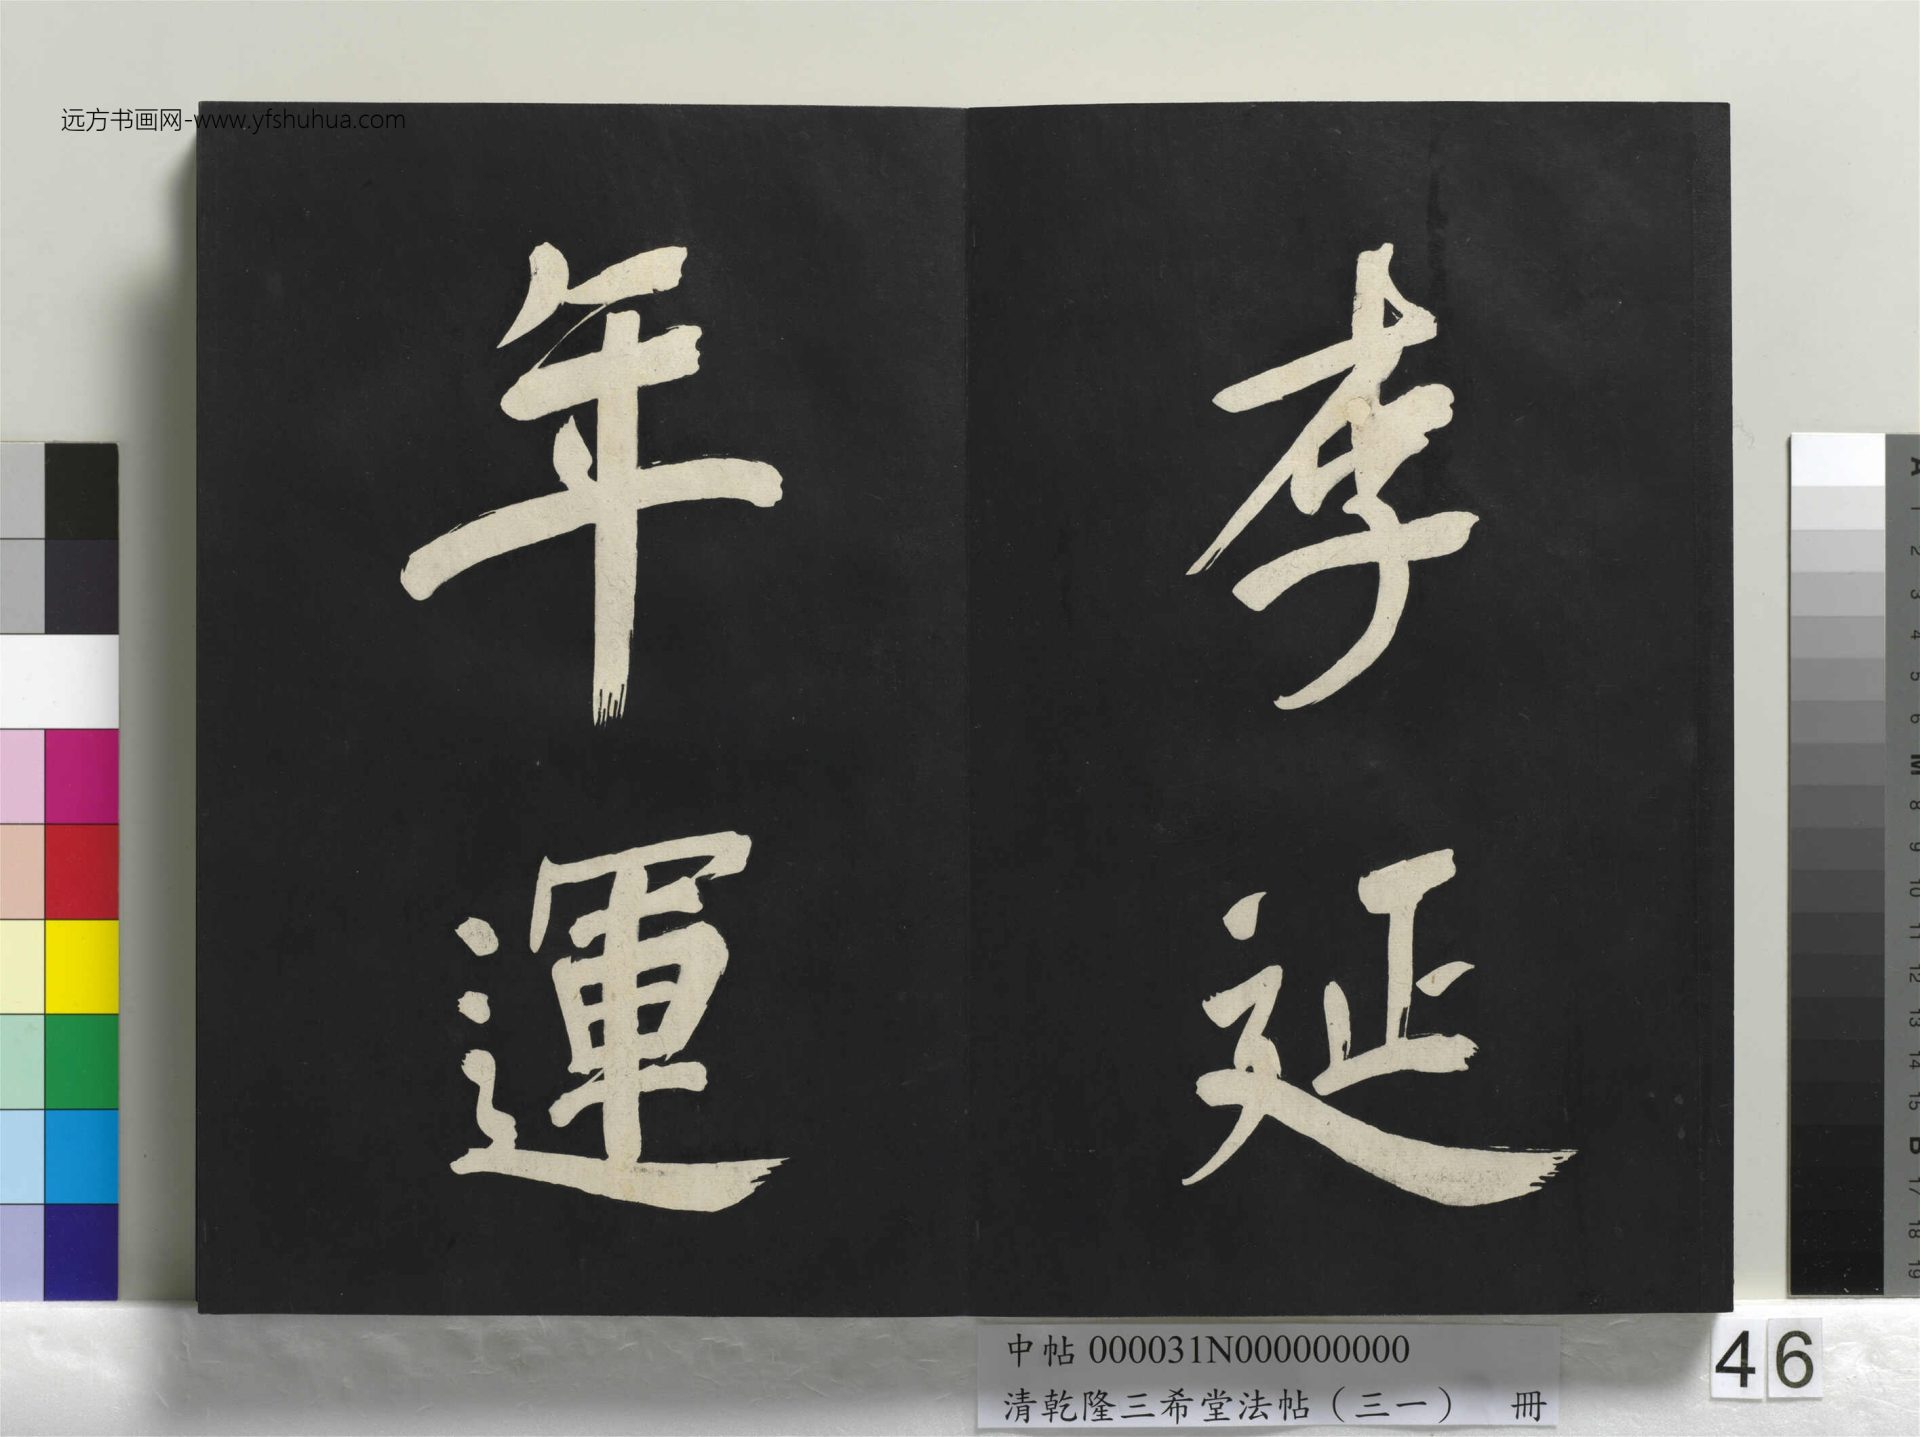 远方书画网-www.yfshuhua.com
李延
年運
中帖 000031N000000000
清乾隆三希堂法帖（三一） 冊
46
A
1
2
3
4
5
6
M
8
9
10
11
12
13
14
15
B
17
18
19